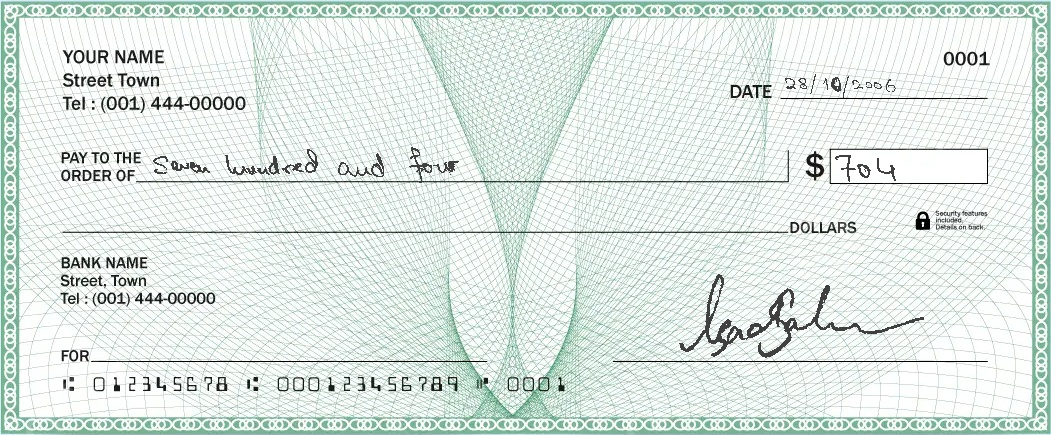 YOUR NAME
0001
Street Town
Tel : (001) 444-00000
DATE 28/10/2006
PAY TO THE
ORDER OF Seven hundred and four
$ 704
DOLLARS
Security features
included.
Details on back.
BANK NAME
Street, Town
Tel : (001) 444-00000
FOR
⑆ 012345678 ⑆ 000123456789 ⑈ 0001